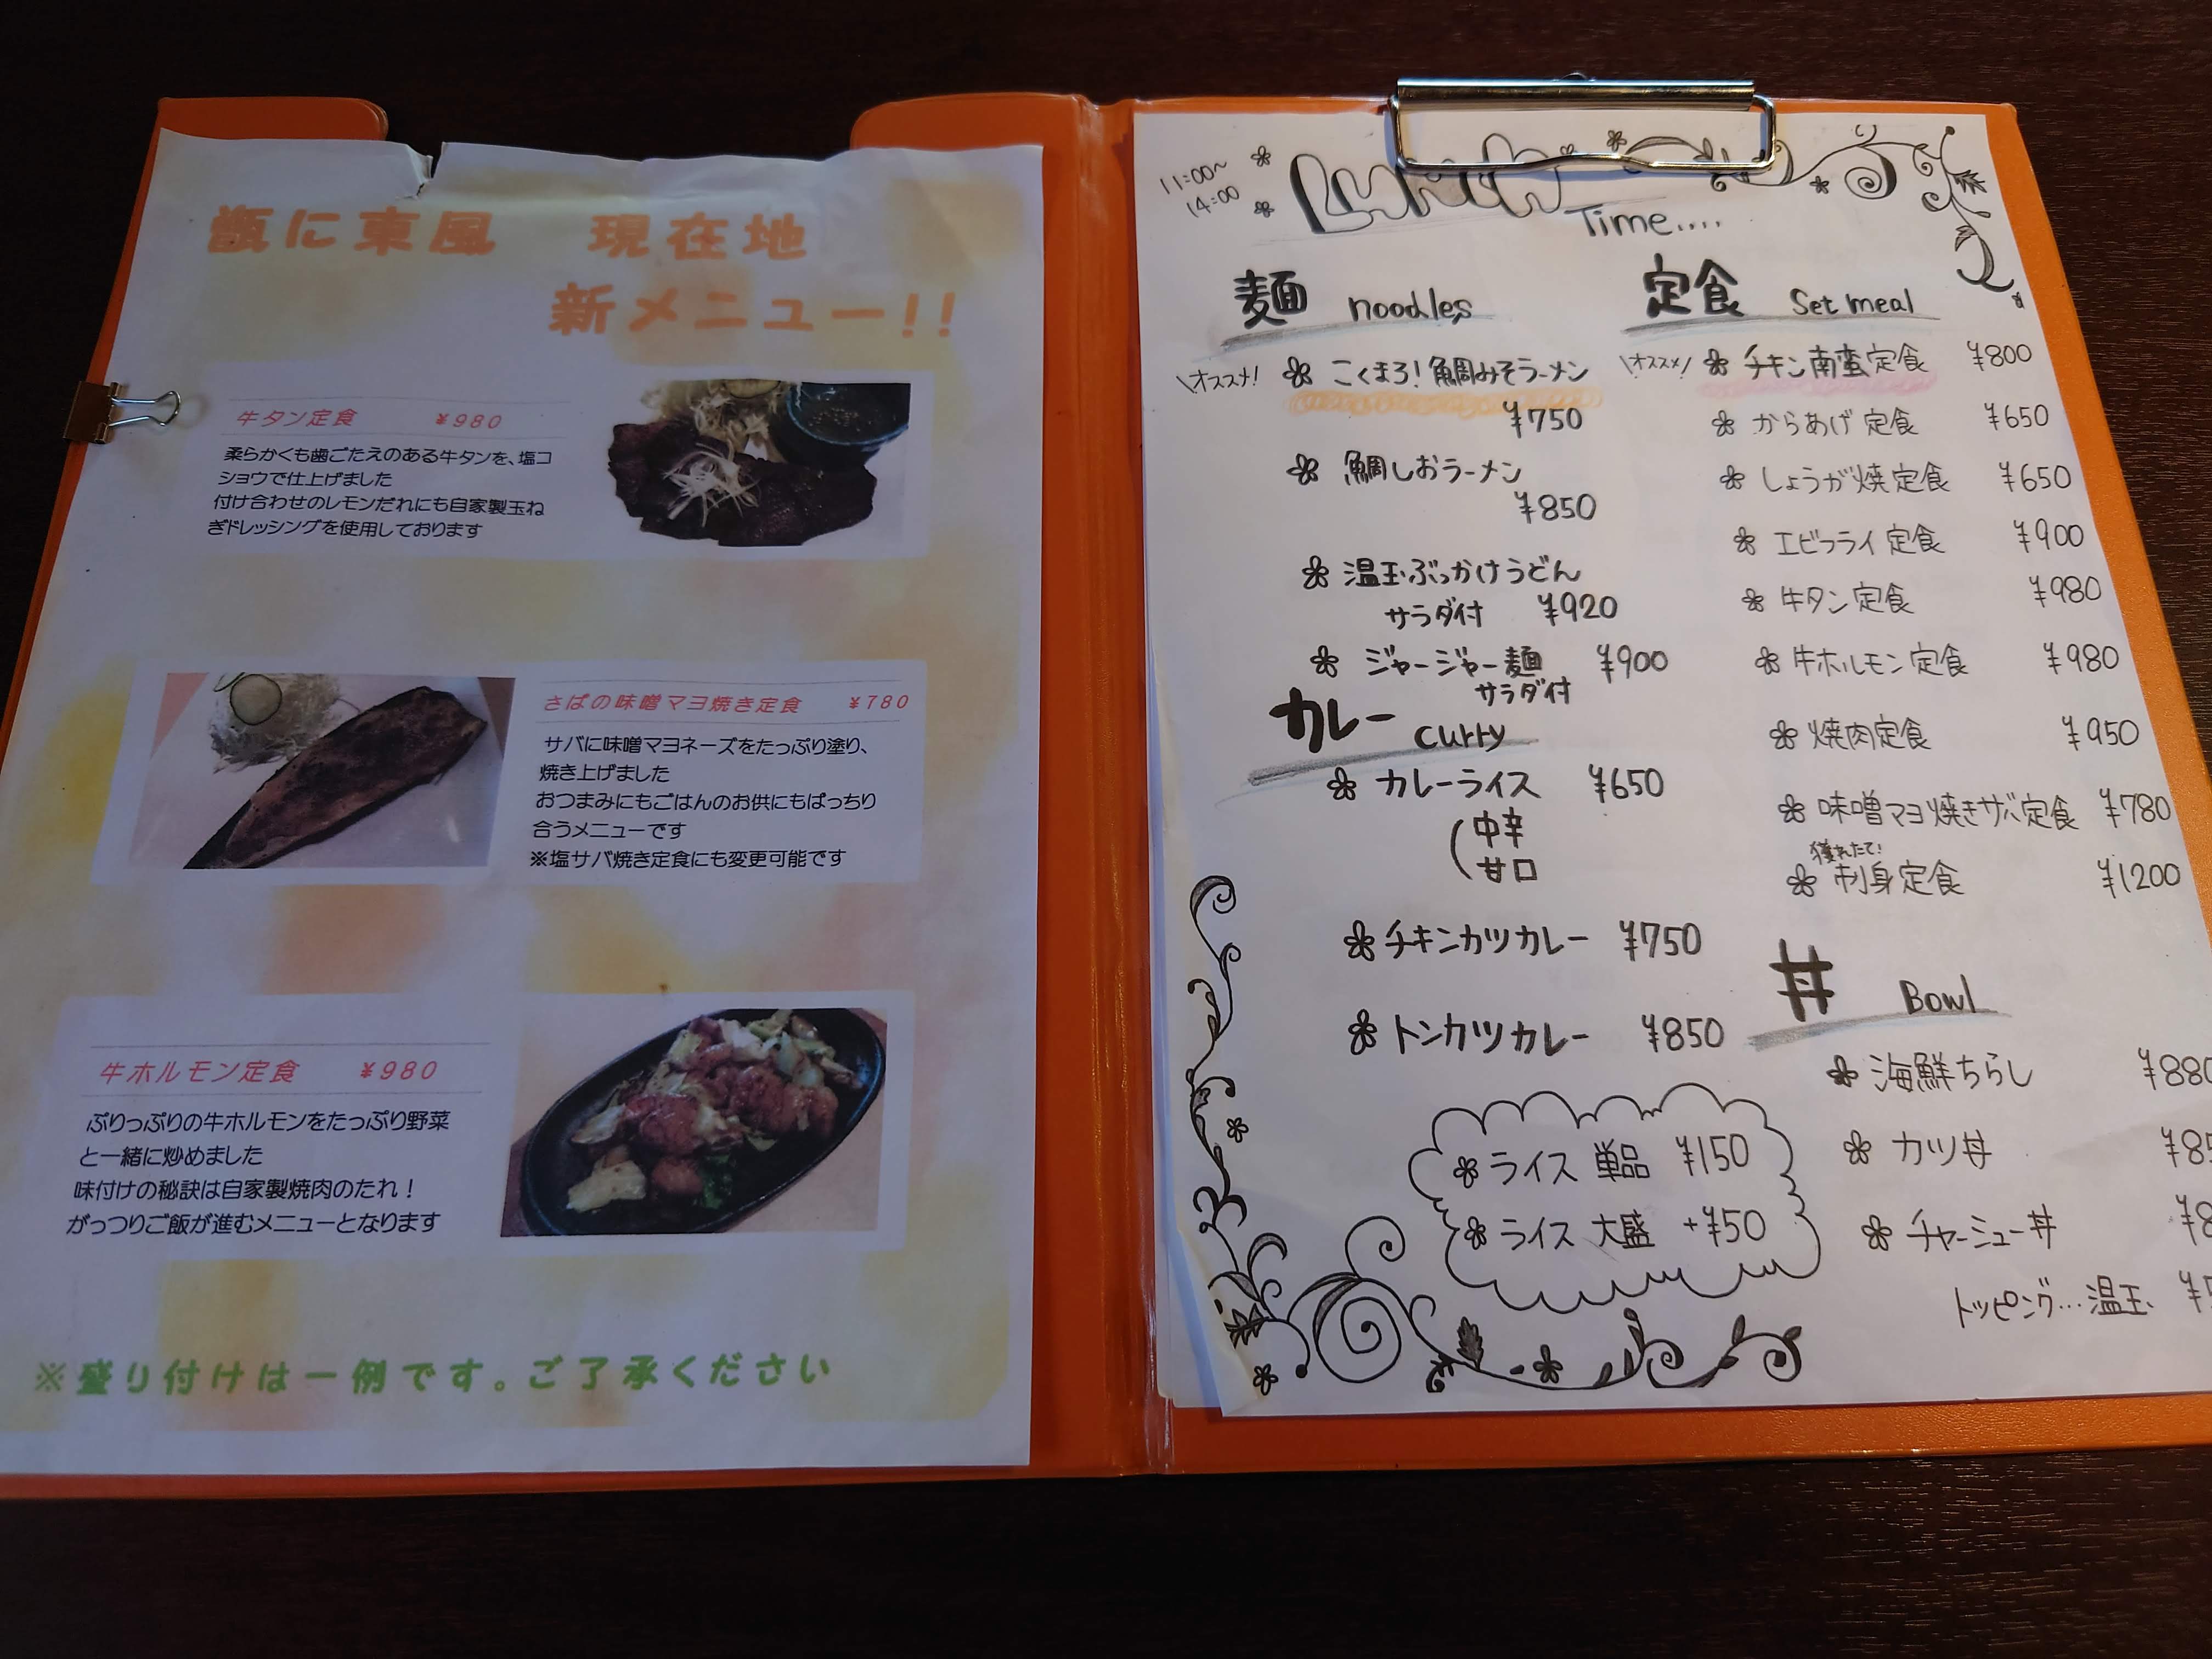 甑に東風　現在地
新メニュー!!
牛タン定食　¥980
柔らかくも歯ごたえのある牛タンを、塩コ
ショウで仕上げました
付け合わせのレモンだれにも自家製玉ね
ぎドレッシングを使用しております
さばの味噌マヨ焼き定食　¥780
サバに味噌マヨネーズをたっぷり塗り、
焼き上げました
おつまみにもごはんのお供にもばっちり
合うメニューです
※塩サバ焼き定食にも変更可能です
牛ホルモン定食　¥980
ぷりっぷりの牛ホルモンをたっぷり野菜
と一緒に炒めました
味付けの秘訣は自家製焼肉のたれ！
がっつりご飯が進むメニューとなります
※盛り付けは一例です。ご了承ください
11:00～
14:00
Lunch
Time....
麺 noodles
\オススメ! こくまろ!鯛みそラーメン
¥750
鯛しおラーメン
¥850
温玉ぶっかけうどん
サラダ付 ¥920
ジャージャー麺 ¥900
サラダ付
カレー curry
カレーライス ¥650
(中辛
甘口
チキンカツカレー ¥750
トンカツカレー ¥850
ライス 単品 ¥150
ライス 大盛 +¥50
定食 Set meal
\オススメ/ チキン南蛮定食 ¥800
からあげ定食 ¥650
しょうが焼定食 ¥650
エビフライ定食 ¥900
牛タン定食 ¥980
牛ホルモン定食 ¥980
焼肉定食 ¥950
味噌マヨ焼きサバ定食 ¥780
獲れたて!
刺身定食 ¥1200
丼 Bowl
海鮮ちらし ¥880
カツ丼
チャーシュー丼
トッピング...温玉